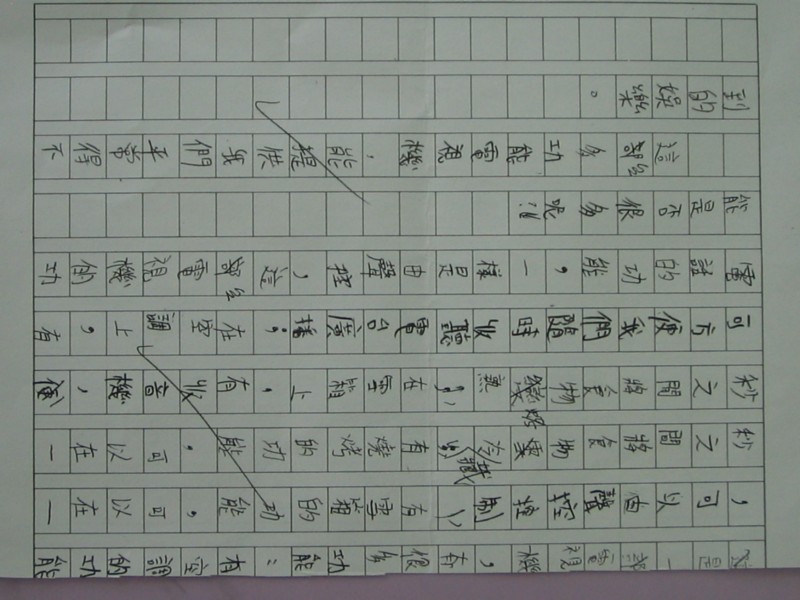 這是一部電視機，有很多功能：有空調的功能
，可以由聲控控制，有雪箱的功能，可以在一
秒之間將食物雪冷；有燒烤的功能，可以在一
秒之間將食物變熱；在雪箱上，有收音機，
可方便我們隨時收聽電台廣播；在空調上，有
電話的功能，一樣是由聲控，這部電視機的功
能是否很多呢?!
這部多功能電視機，能提供我們平常得不
到的娛樂。